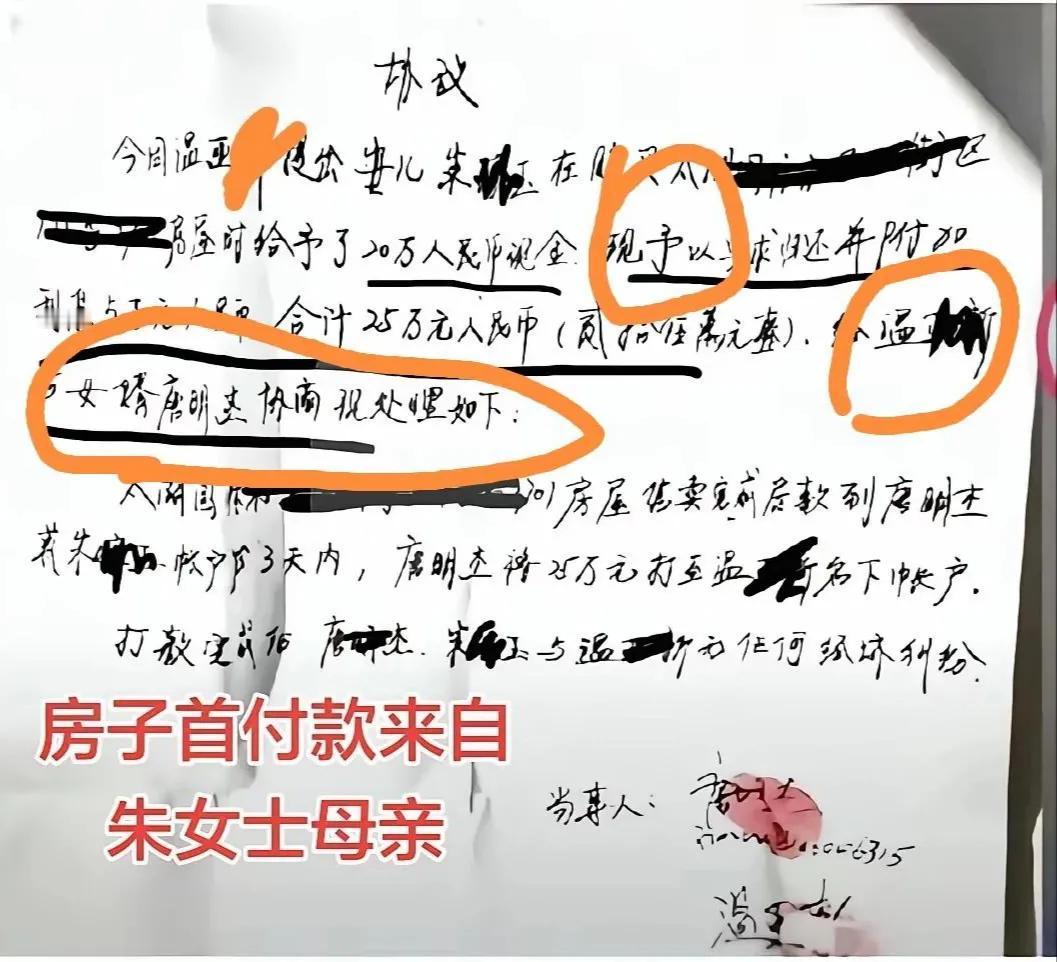 协议
今因温亚 是给女儿朱 玉在购买太 街区
房屋时给予了20万人民币现金.现予以要求归还并附加
利息 万元人民币 合计25万元人民币(贰拾伍萬元整).经温
与女婿唐明杰协商现处置如下:
房屋售卖完成后款到唐明杰
或朱 帐户 3天内,唐明杰将25万元打至温 名下帐户.
打款完成后 唐 杰.朱 玉与温 无任何经济纠纷.
房子首付款来自
朱女士母亲
当事人: 唐
6315
温